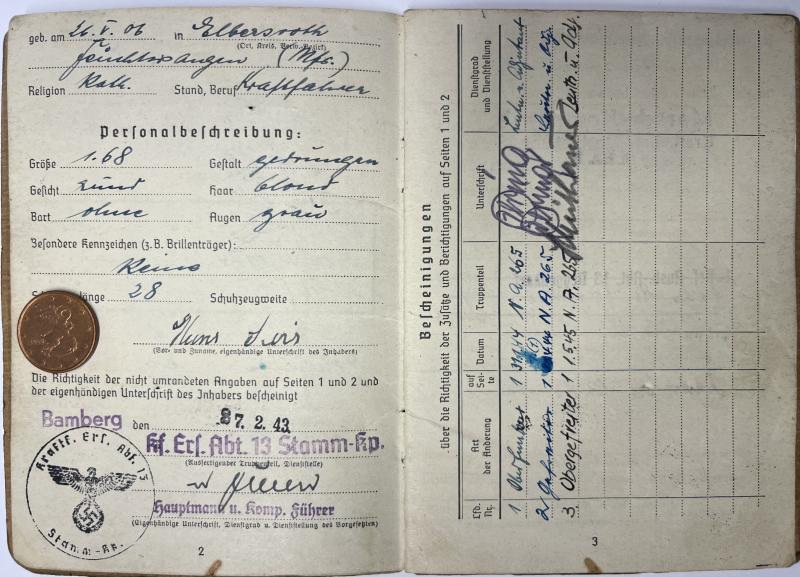 geb. am 26. V. 06 in Elbersroth
(Ort, Kreis, Verw.-Bezirk)
Feuchtwangen (Mfr.)
Religion Kath. Stand, Beruf Kraftfahrer
Personalbeschreibung:
Größe 1.68 Gestalt gedrungen
Gesicht rund Haar blond
Bart ohne Augen grau
Besondere Kennzeichen (z.B. Brillenträger):
Keine
länge 28 Schuhzeugweite
Hans
(Vor- und Zuname, eigenhändige Unterschrift des Inhabers)
Die Richtigkeit der nicht umrandeten Angaben auf Seiten 1 und 2 und
der eigenhändigen Unterschrift des Inhabers bescheinigt
Bamberg den 27. 2. 43
Kf. Ers. Abt. 13 Stamm-Kp.
(Ausfertigender Truppenteil, Dienststelle)
Hauptmann u. Komp. Führer
(Eigenhändige Unterschrift, Dienstgrad u. Dienststellung des Vorgesetzten)
Kraftf. Ers. Abt. 13
Stamm-Kp.
2
Bescheinigungen
über die Richtigkeit der Zusätze und Berichtigungen auf Seiten 1 und 2
Lfd. Nr. Art der Änderung auf Seite Datum Truppenteil Unterschrift Dienstgrad und Dienststellung
1 1 N.A. 265
2 Gefreiter 1 N.A. 265
3 Obergefreiter 1 1.5.45 N.A. 265 Leutn. u. Adj.
3